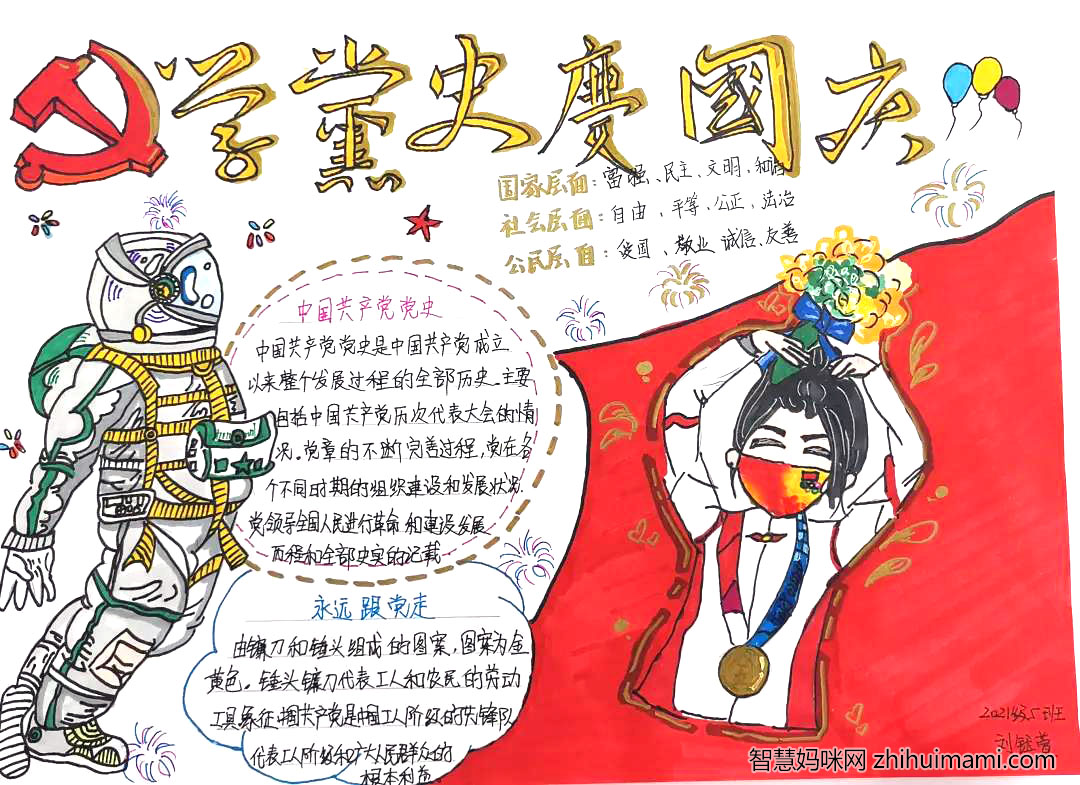 学黨史慶國庆
国家层面：富强、民主、文明、和谐
社会层面：自由、平等、公正、法治
公民层面：爱国、敬业、诚信、友善
中国共产党党史
中国共产党党史是中国共产党成立
以来整个发展过程的全部历史。主要
包括中国共产党历次代表大会的情
况。党章的不断完善过程，党在各
个不同时期的组织建设和发展状况
党领导全国人民进行革命和建设发展
历程和全部史实的记载
永远跟党走
由镰刀和锤头组成的图案，图案为金
黄色。锤头镰刀代表工人和农民的劳动
工具象征中国共产党是中国工人阶级的先锋队
代表工人阶级和广大人民群众的
根本利益。
2021级5班
刘
智慧妈咪网 zhihuimami.com